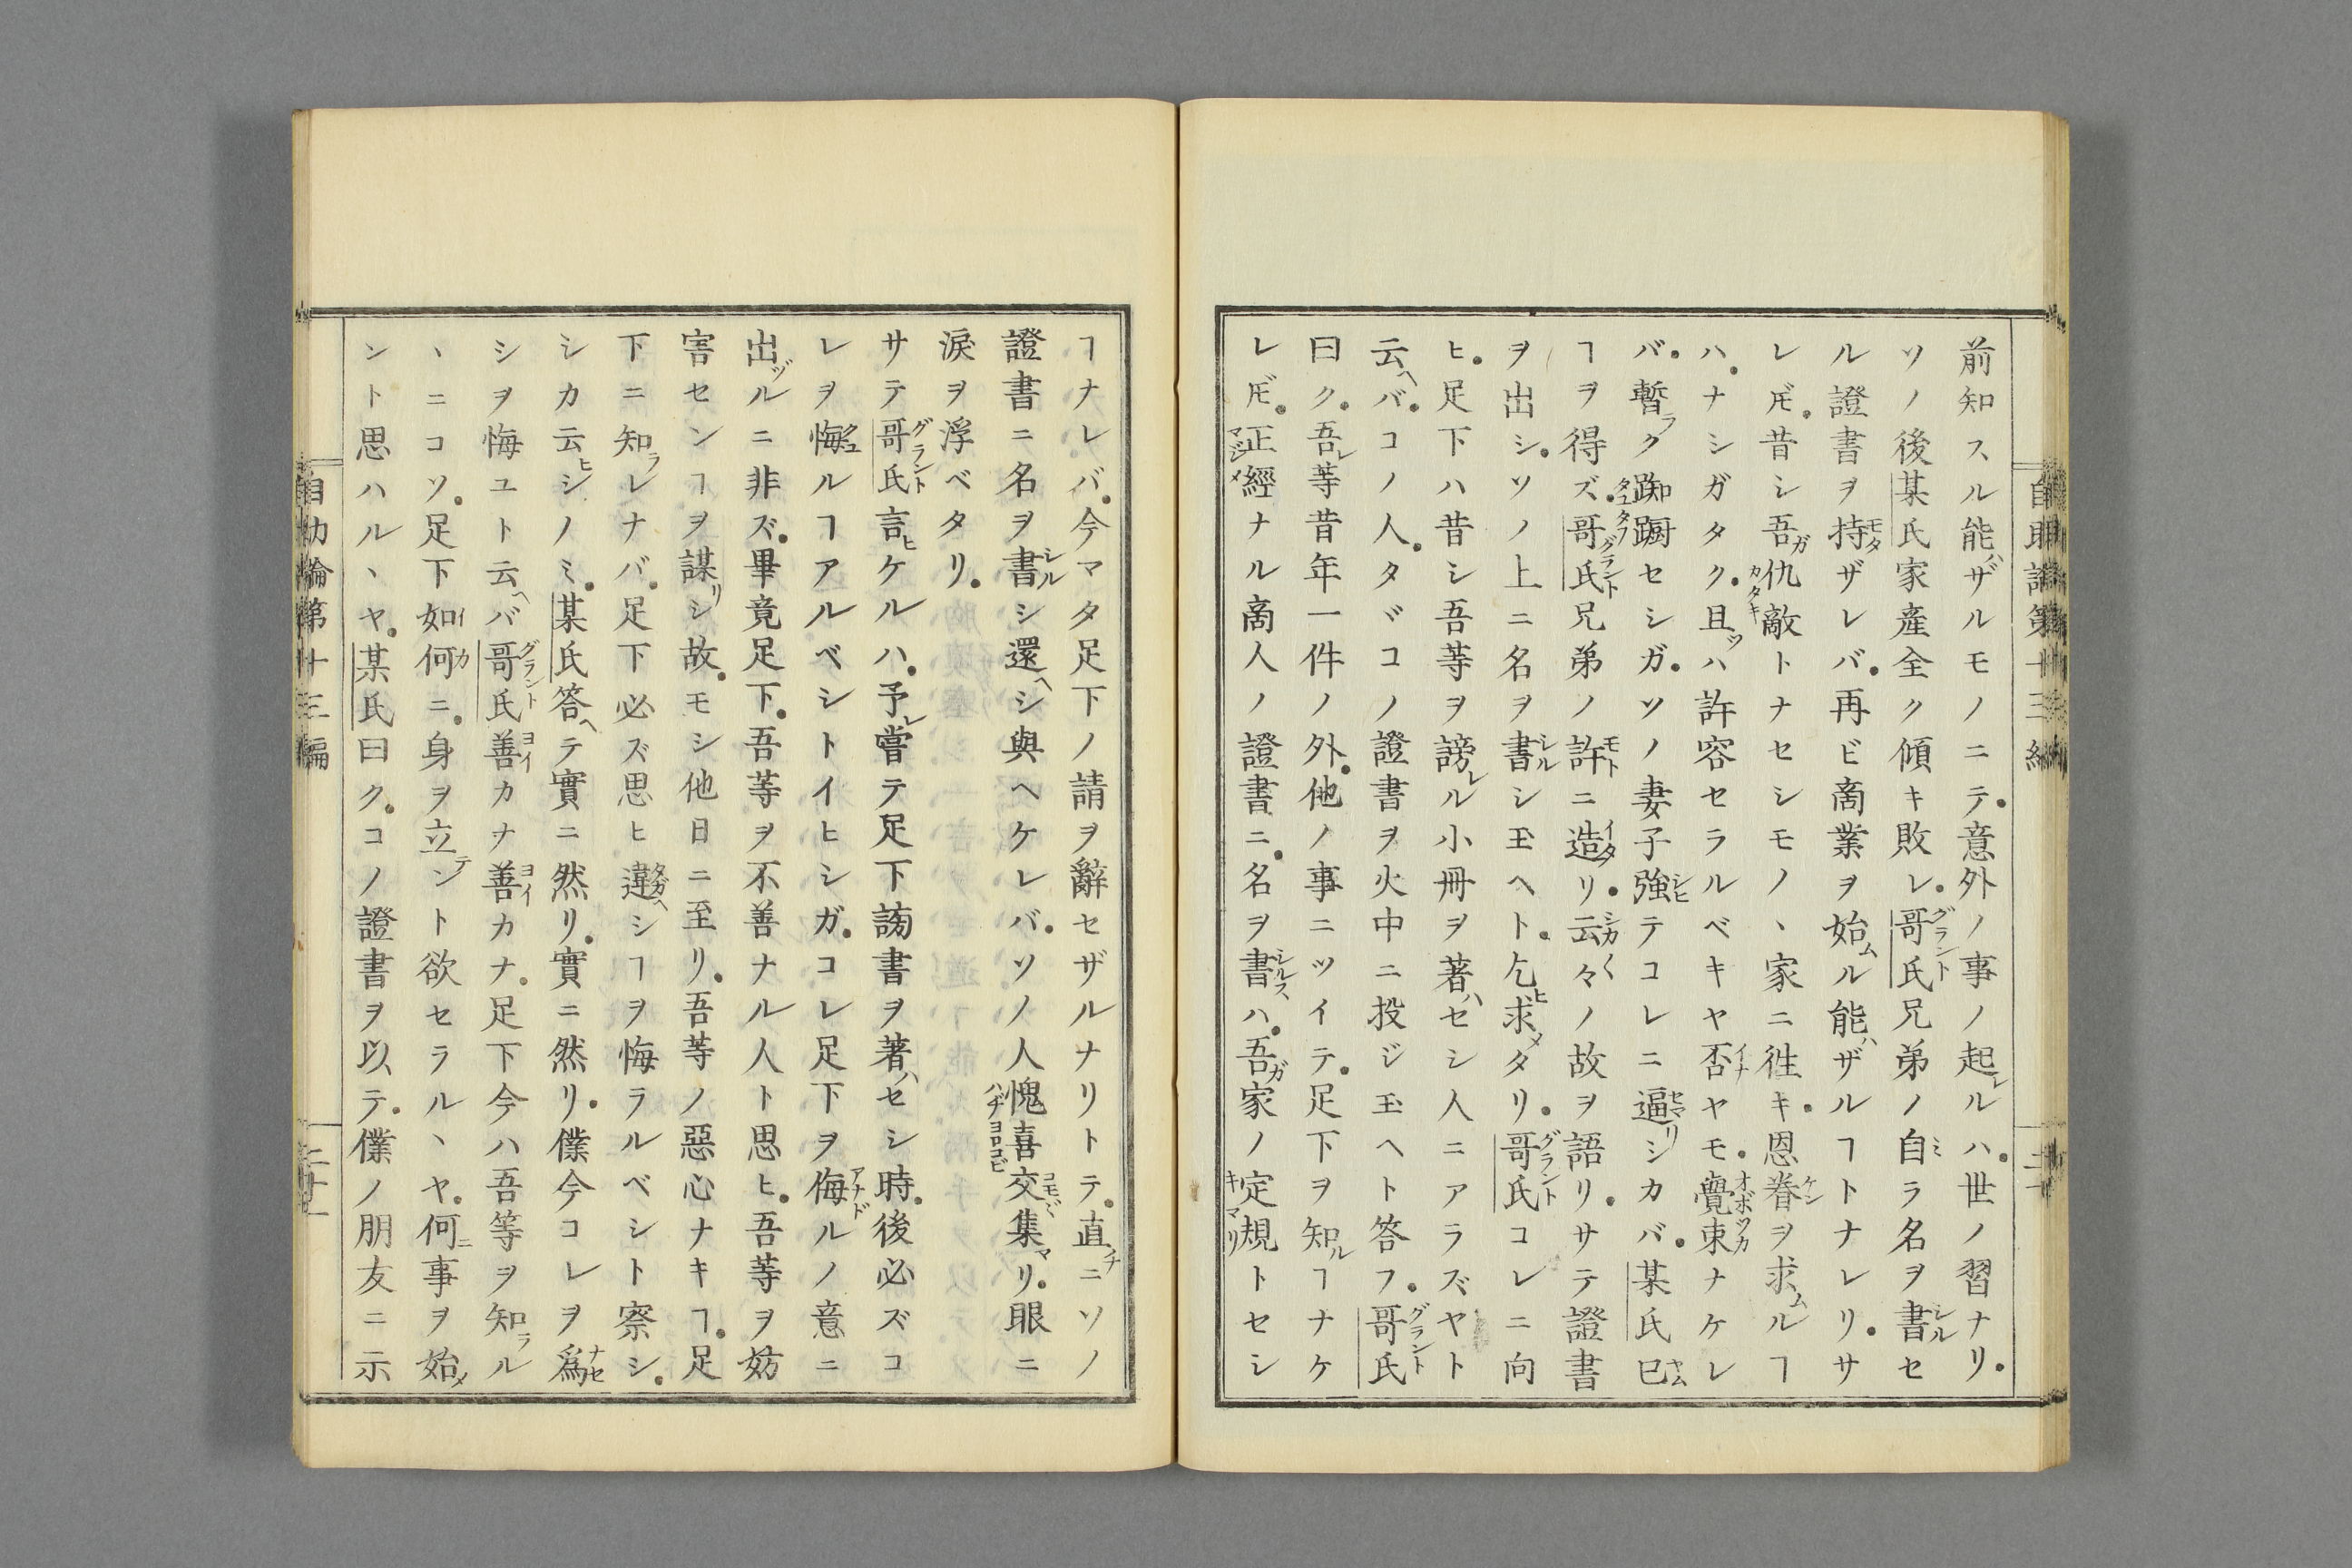 前知スル能ハザルモノニテ。意外ノ事ノ起レルハ。世ノ習ナリ。
ソノ後某氏家產全ク傾キ敗レ。哥氏兄弟ノ自ミラ名ヲ書セ
ル證書ヲ持ザレバ。再ビ商業ヲ始ムル能ハザルヿトナレリ。サ
レ𪜈。昔シ吾ガ仇敵トナセシモノヽ家ニ徃キ。恩眷ヲ求ムルヿ
ハ。ナシガタク。且ツハ許容セラルベキヤ否ヤモ。覺束ナケレ
バ。暫ラク踟蹰セシガ。ソノ妻子強テコレニ逼リシカバ。某氏巳
ヿヲ得ズ。哥氏兄弟ノ許ニ造リ。云々ノ故ヲ語リ。サテ證書
ヲ出シ。ソノ上ニ名ヲ書シ玉ヘト。乞ヒ求メタリ。哥氏コレニ向
ヒ。足下ハ昔シ吾等ヲ謗レル小冊ヲ著ハセシ人ニアラズヤト
云ヘバ。コノ人。タヾコノ證書ヲ火中ニ投ジ玉ヘト答フ。哥氏
曰ク。吾レ等昔年一件ノ外。他ノ事ニツイテ。足下ヲ知ルヿナケ
レ𪜈。正經ナル商人ノ證書ニ。名ヲ書ハ。吾ガ家ノ定規トセシ
自助論第十三編
ヿナレバ。今マタ足下ノ請ヲ辭セザルナリトテ。直チニソノ
證書ニ名ヲ書シ還ヘシ與ヘケレバ。ソノ人愧喜交集マリ。眼ニ
淚ヲ浮ベタリ。
サテ哥氏言ヒケルハ。予レ嘗テ足下謗書ヲ著ハセシ時。後必ズコ
レヲ悔ルヿアルベシトイヒシガ。コレ足下ヲ侮ルノ意ニ
出ヅルニ非ズ。畢竟足下。吾等ヲ不善ナル人ト思ヒ。吾等ヲ妨
害センヿヲ謀リシ故。モシ他日ニ至リ。吾等ノ惡心ナキヿ。足
下ニ知ラレナバ。足下必ズ思ヒ違ヘシヿヲ悔ラルベシト察シ。
シカ云ヒシノミ。某氏答ヘテ實ニ然リ。實ニ然リ。僕今コレヲ爲
シヲ悔ユト云ヘバ哥氏善カナ善カナ。足下今ハ吾等ヲ知ラル
ヽニコソ。足下如何ニ。身ヲ立テント欲セラルヽヤ。何ニ事ヲ始メ
ント思ハルヽヤ。某氏曰ク。コノ證書ヲ以テ。僕ノ朋友ニ示
自助論第十三編